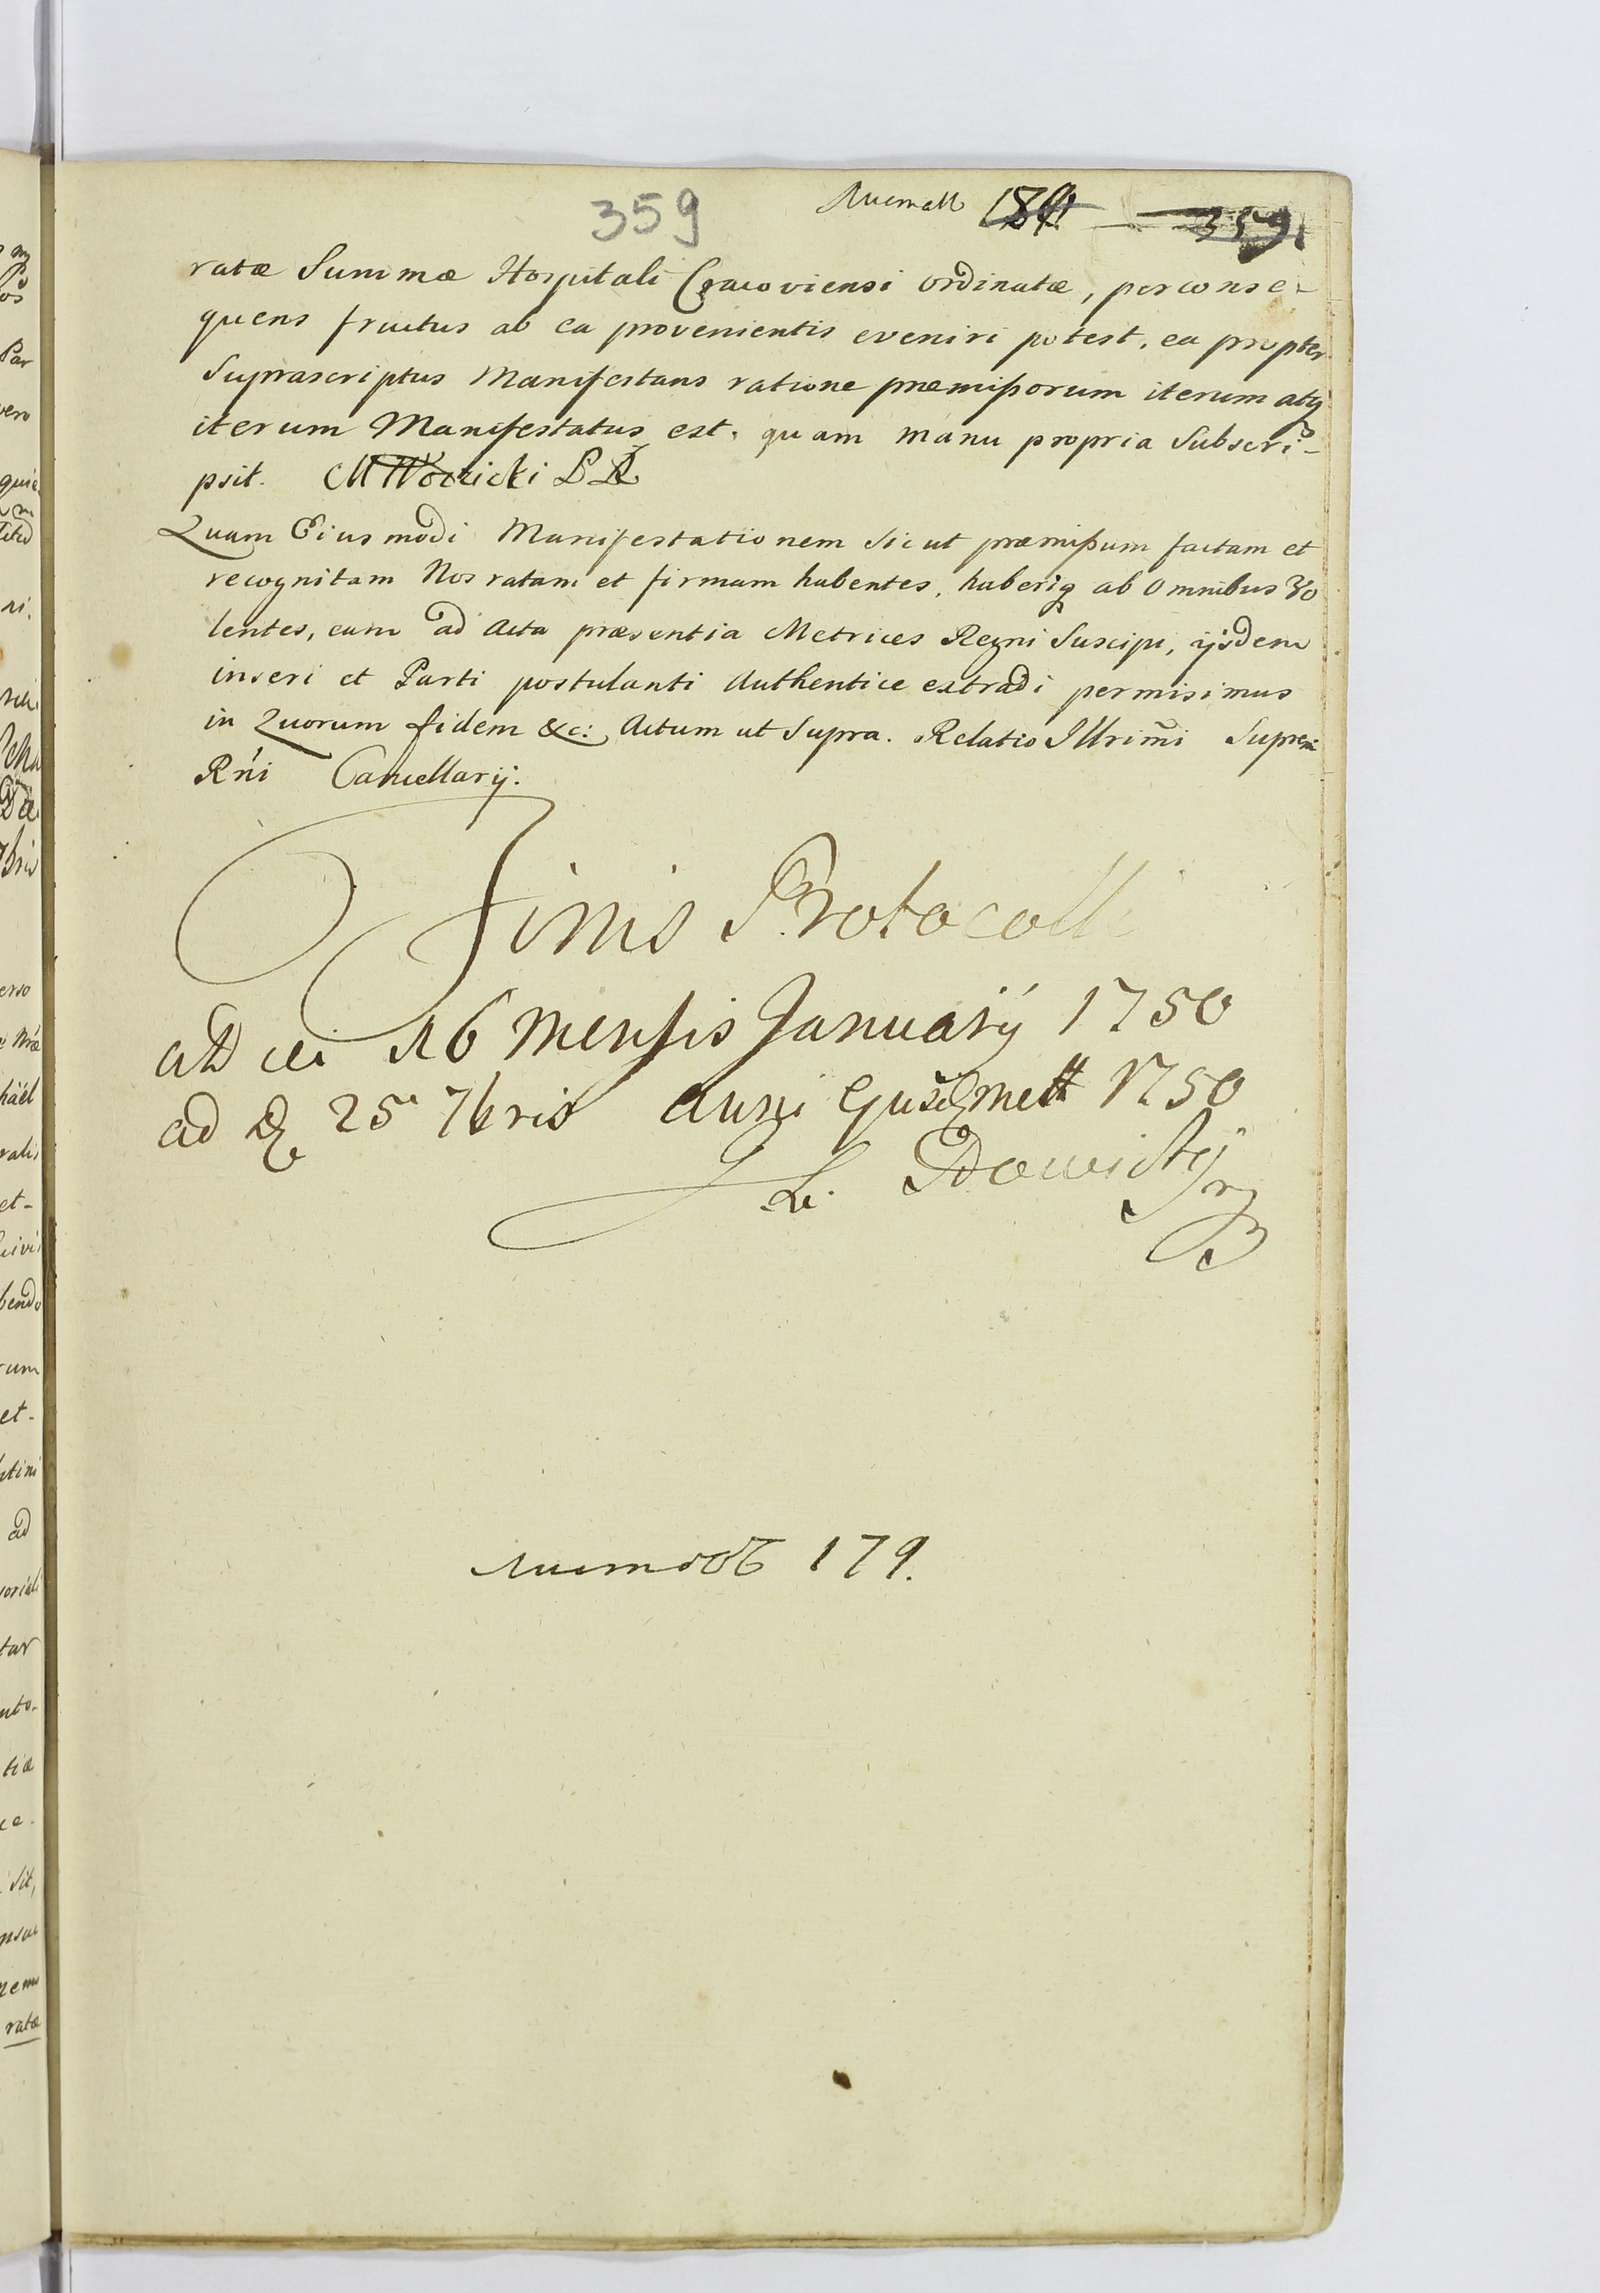 359 листъ 180 359
ratæ Summæ Hospitali Cracoviensi ordinatæ, perconse-
quens fructus ab ea provenientis eveniri potest, ea propter
Suprascriptus Manifestans ratione præmißorum iterum atq
iterum Manifestatus est, quam manu propria Subscri-
psit.
Quam Eiusmodi Manifestationem Sicut præmißum factam et
recognitam Nos ratam et firmam habentes, haberiq ab Omnibus Vo
lentes, eam ad Acta præsentia Metrices Regni Suscipi, ijsdem
inseri et Parti postulanti Authentice extradi permisimus
in Quorum fidem &c: Actum ut Supra. Relatio Illrimi Supremi
Rni Cancellarij.
Finis Protocolli
16 Mensis Januarij 1750
ad 25 7bris Anni 1750
листовъ 179.
ratæ